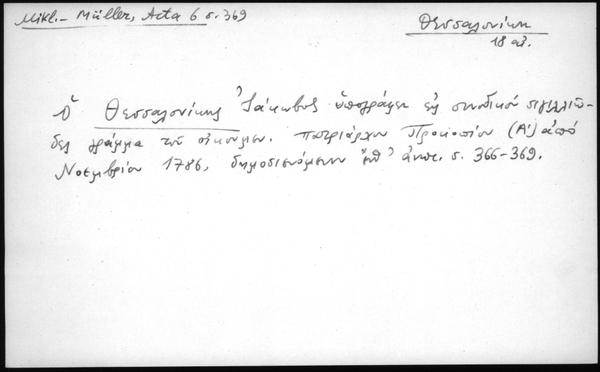 Mikl.- Müller, Acta 6 σ. 369
Θεσσαλονίκη
18 αἰ.
Ὁ Θεσσαλονίκης Ἰάκωβος ὑπογράφει εἰς συνοδικόν σιγιλλιῶ-
δες γράμμα τοῦ οἰκουμεν. πατριάρχου Προκοπίου (Α΄) ἀπό
Νοεμβρίου 1786, δημοσιευόμενον ἔνθ' ἀνωτ. σ. 366-369.